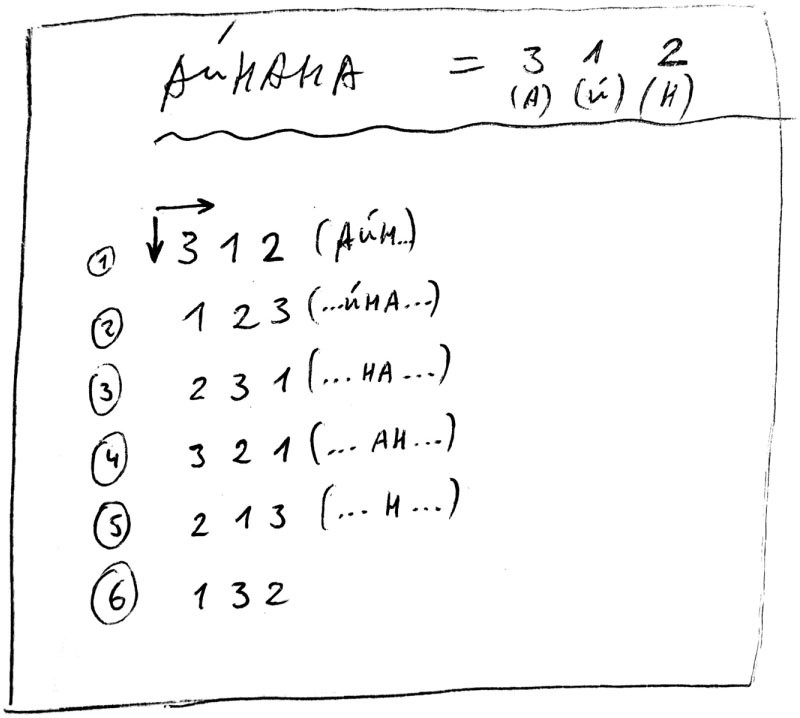 АЙНАНА = 3 1 2
(А) (Й) (Н)
① 3 1 2 (АЙН..)
② 1 2 3 (...ЙНА...)
③ 2 3 1 (... НА ...)
④ 3 2 1 (... АН ...)
⑤ 2 1 3 (... Н ...)
⑥ 1 3 2